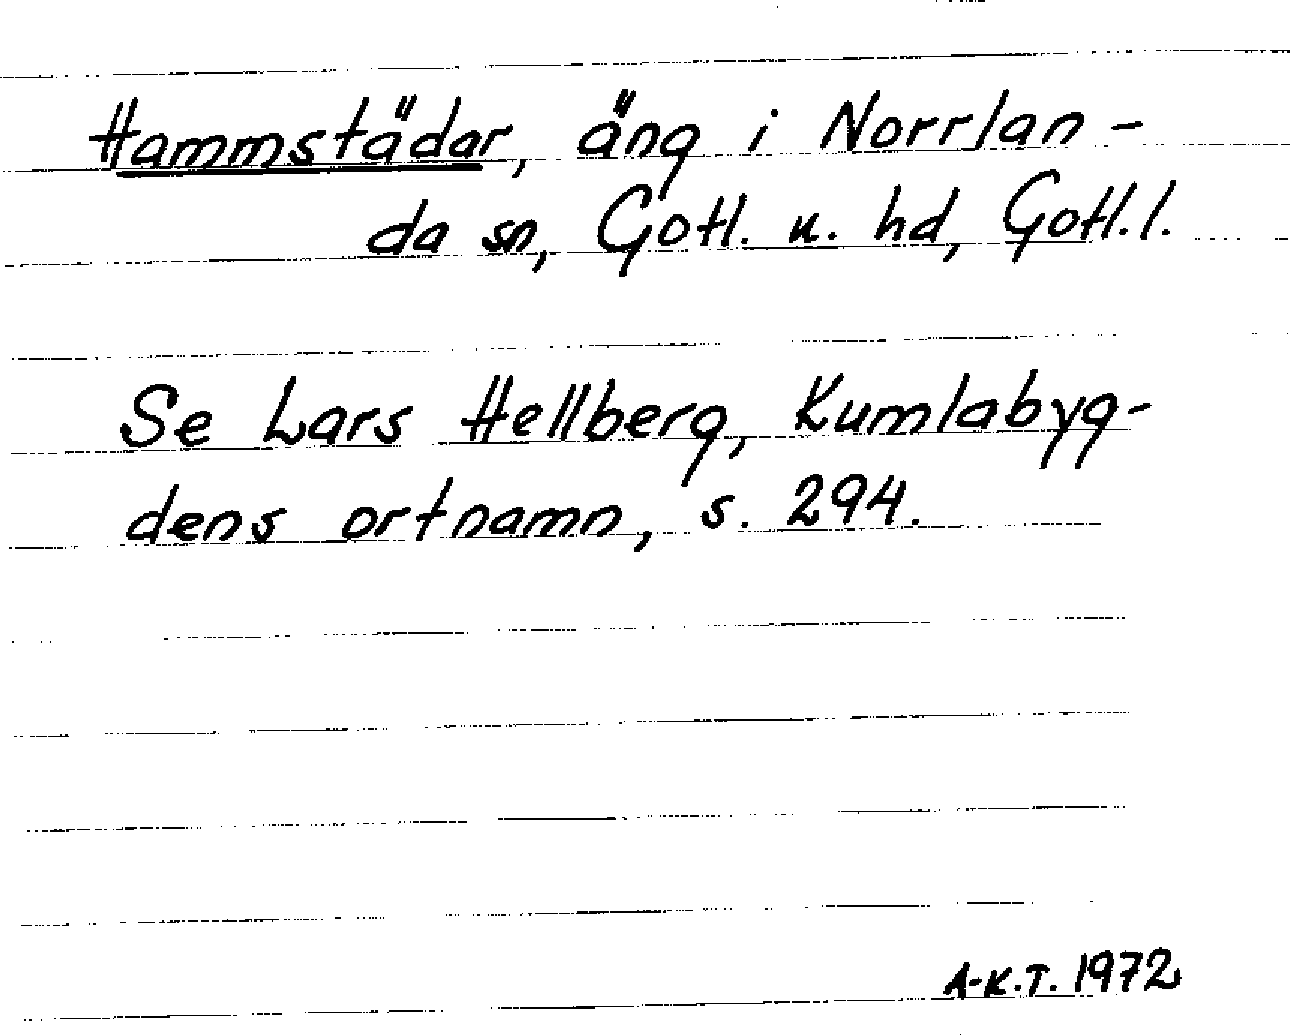 Hammstädar, äng i Norrlan-
da sn, Gotl. n. hd, Gotl.l.
Se Lars Hellberg, Kumlabyg-
dens ortnamn, s. 294.
A-K.T. 1972